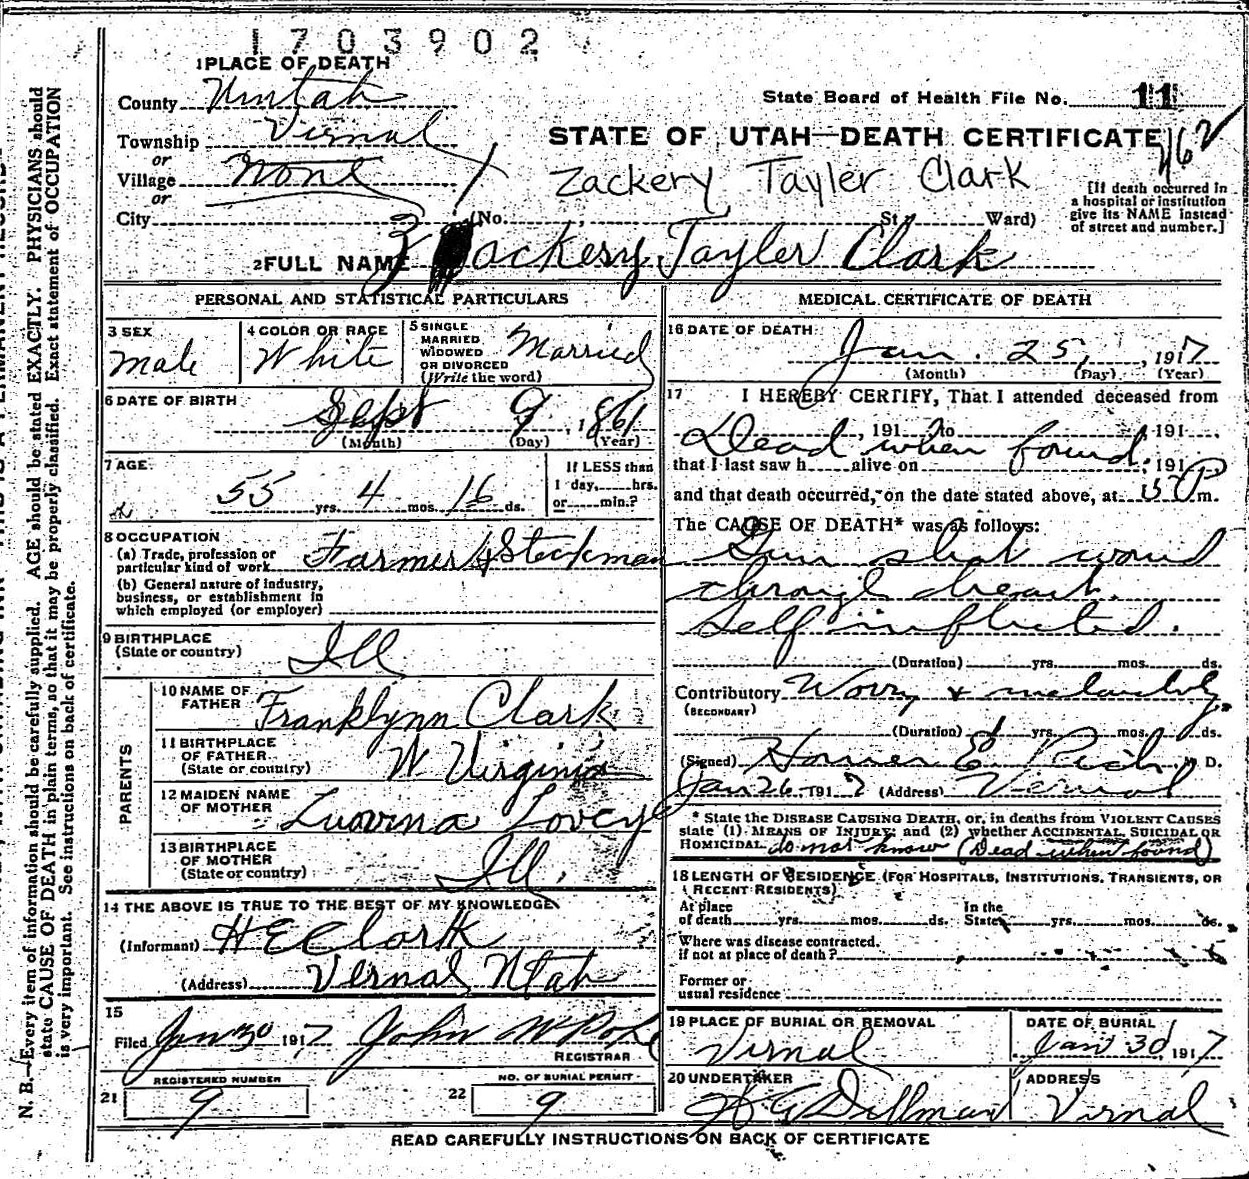 1703902
1 PLACE OF DEATH
County Uintah
State Board of Health File No. 11
Township Vernal
STATE OF UTAH—DEATH CERTIFICATE
462
or
Village None
Zackery Tayler Clark
[If death occurred in
a hospital or institution
give its NAME instead
of street and number.]
or
City (No. St. Ward)
2 FULL NAME Zackery Tayler Clark
PERSONAL AND STATISTICAL PARTICULARS
3 SEX
Male
4 COLOR OR RACE
White
5 SINGLE
MARRIED
WIDOWED
OR DIVORCED
(Write the word)
Married
6 DATE OF BIRTH
Sept 9, 1861
(Month) (Day) (Year)
7 AGE
55 yrs. 4 mos. 16 ds.
If LESS than
1 day, hrs.
or min.?
8 OCCUPATION
(a) Trade, profession or
particular kind of work Farmer & Stockman
(b) General nature of industry,
business, or establishment in
which employed (or employer)
9 BIRTHPLACE
(State or country) Ill
PARENTS
10 NAME OF
FATHER Franklynn Clark
11 BIRTHPLACE
OF FATHER
(State or country) W Virginia
12 MAIDEN NAME
OF MOTHER Luovina Lovcye
13 BIRTHPLACE
OF MOTHER
(State or country) Ill.
14 THE ABOVE IS TRUE TO THE BEST OF MY KNOWLEDGE
(Informant) H E Clark
(Address) Vernal Utah
15
Filed Jan 30 1917 John W
REGISTRAR
REGISTERED NUMBER
21 9
NO. OF BURIAL PERMIT
22 9
MEDICAL CERTIFICATE OF DEATH
16 DATE OF DEATH
Jan. 25, 1917
(Month) (Day) (Year)
17 I HEREBY CERTIFY, That I attended deceased from
, 191 to 191 ,
Dead when found
that I last saw h alive on , 191
and that death occurred, on the date stated above, at P m.
The CAUSE OF DEATH* was as follows:
Gun shot wound
through heart.
Self inflicted.
(Duration) yrs. mos. ds.
Contributory Worry & melancholy.
(SECONDARY)
(Duration) 1 yrs. mos. ds.
(Signed) Homer E. Rich M. D.
Jan 26, 1917 (Address) Vernal
* State the DISEASE CAUSING DEATH, or, in deaths from VIOLENT CAUSES
state (1) MEANS OF INJURY; and (2) whether ACCIDENTAL, SUICIDAL OR
HOMICIDAL. do not know (Dead when found)
18 LENGTH OF RESIDENCE (FOR HOSPITALS, INSTITUTIONS, TRANSIENTS, OR
RECENT RESIDENTS)
At place
of death yrs. mos. ds.
In the
State yrs. mos. ds.
Where was disease contracted.
if not at place of death?
Former or
usual residence
19 PLACE OF BURIAL OR REMOVAL
Vernal
DATE OF BURIAL
Jan 30, 1917
20 UNDERTAKER
Dillman
ADDRESS
Vernal
READ CAREFULLY INSTRUCTIONS ON BACK OF CERTIFICATE
N. B.—Every item of information should be carefully supplied. AGE should be stated EXACTLY. PHYSICIANS should
state CAUSE OF DEATH in plain terms, so that it may be properly classified. Exact statement of OCCUPATION
is very important. See instructions on back of certificate.